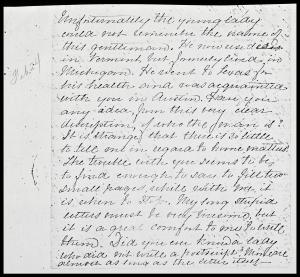 Unfortunately the young lady
could not remember the name of
this gentleman. He now resides
in Vermont but formerly lived in
Michigan. He went to Texas for
his health and was acquainted
with you in Austin. Have you
any idea, from this very clear
description, of who the man is?
It is strange that there is so little
to tell one in regard to home matters.
The trouble with you seems to be
to find enough to say to fill two
small pages, while with me, it
is, when to stop. My long stupid
letters must be very tiresome, but
it is a great comfort to me to write
them. Did you ever know a lady
who did not write a postscript? Mine are
almost as long as the letter itself